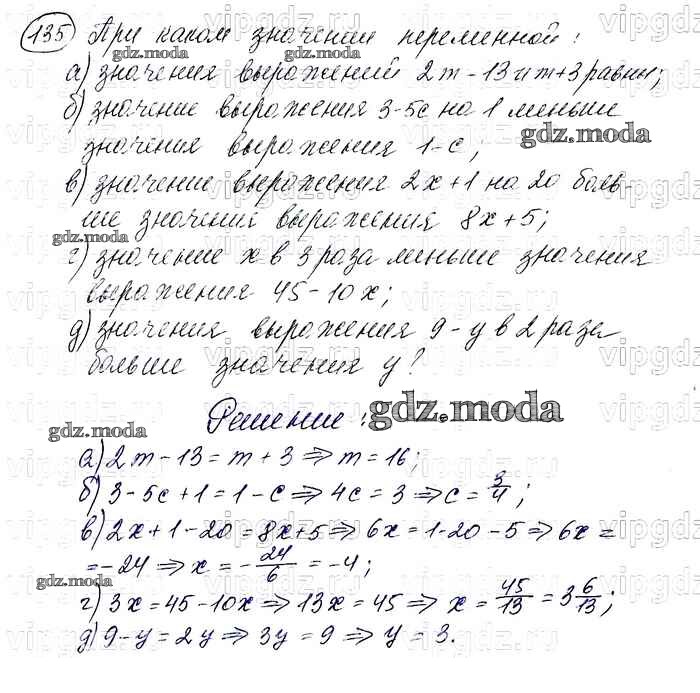 135 При каком значении переменной:
а) значения выражений 2m-13 и m+3 равны;
б) значение выражения 3-5c на 1 меньше
значения выражения 1-c;
в) значение выражения 2x+1 на 20 боль-
ше значения выражения 8x+5;
г) значение x в 3 раза меньше значения
выражения 45-10x;
д) значения выражения 9-y в 2 раза
больше значения y?
Решение:
а) 2m-13=m+3⇒m=16;
б) 3-5c+1=1-c⇒4c=3⇒c=3/4;
в) 2x+1-20=8x+5⇒6x=1-20-5⇒6x=
=-24⇒x=-24/6=-4;
г) 3x=45-10x⇒13x=45⇒x=45/13=3 6/13;
д) 9-y=2y⇒3y=9⇒y=3.
gdz.moda
gdz.moda
gdz.moda
gdz.moda
gdz.moda
gdz.moda
gdz.moda
vipgdz.ru